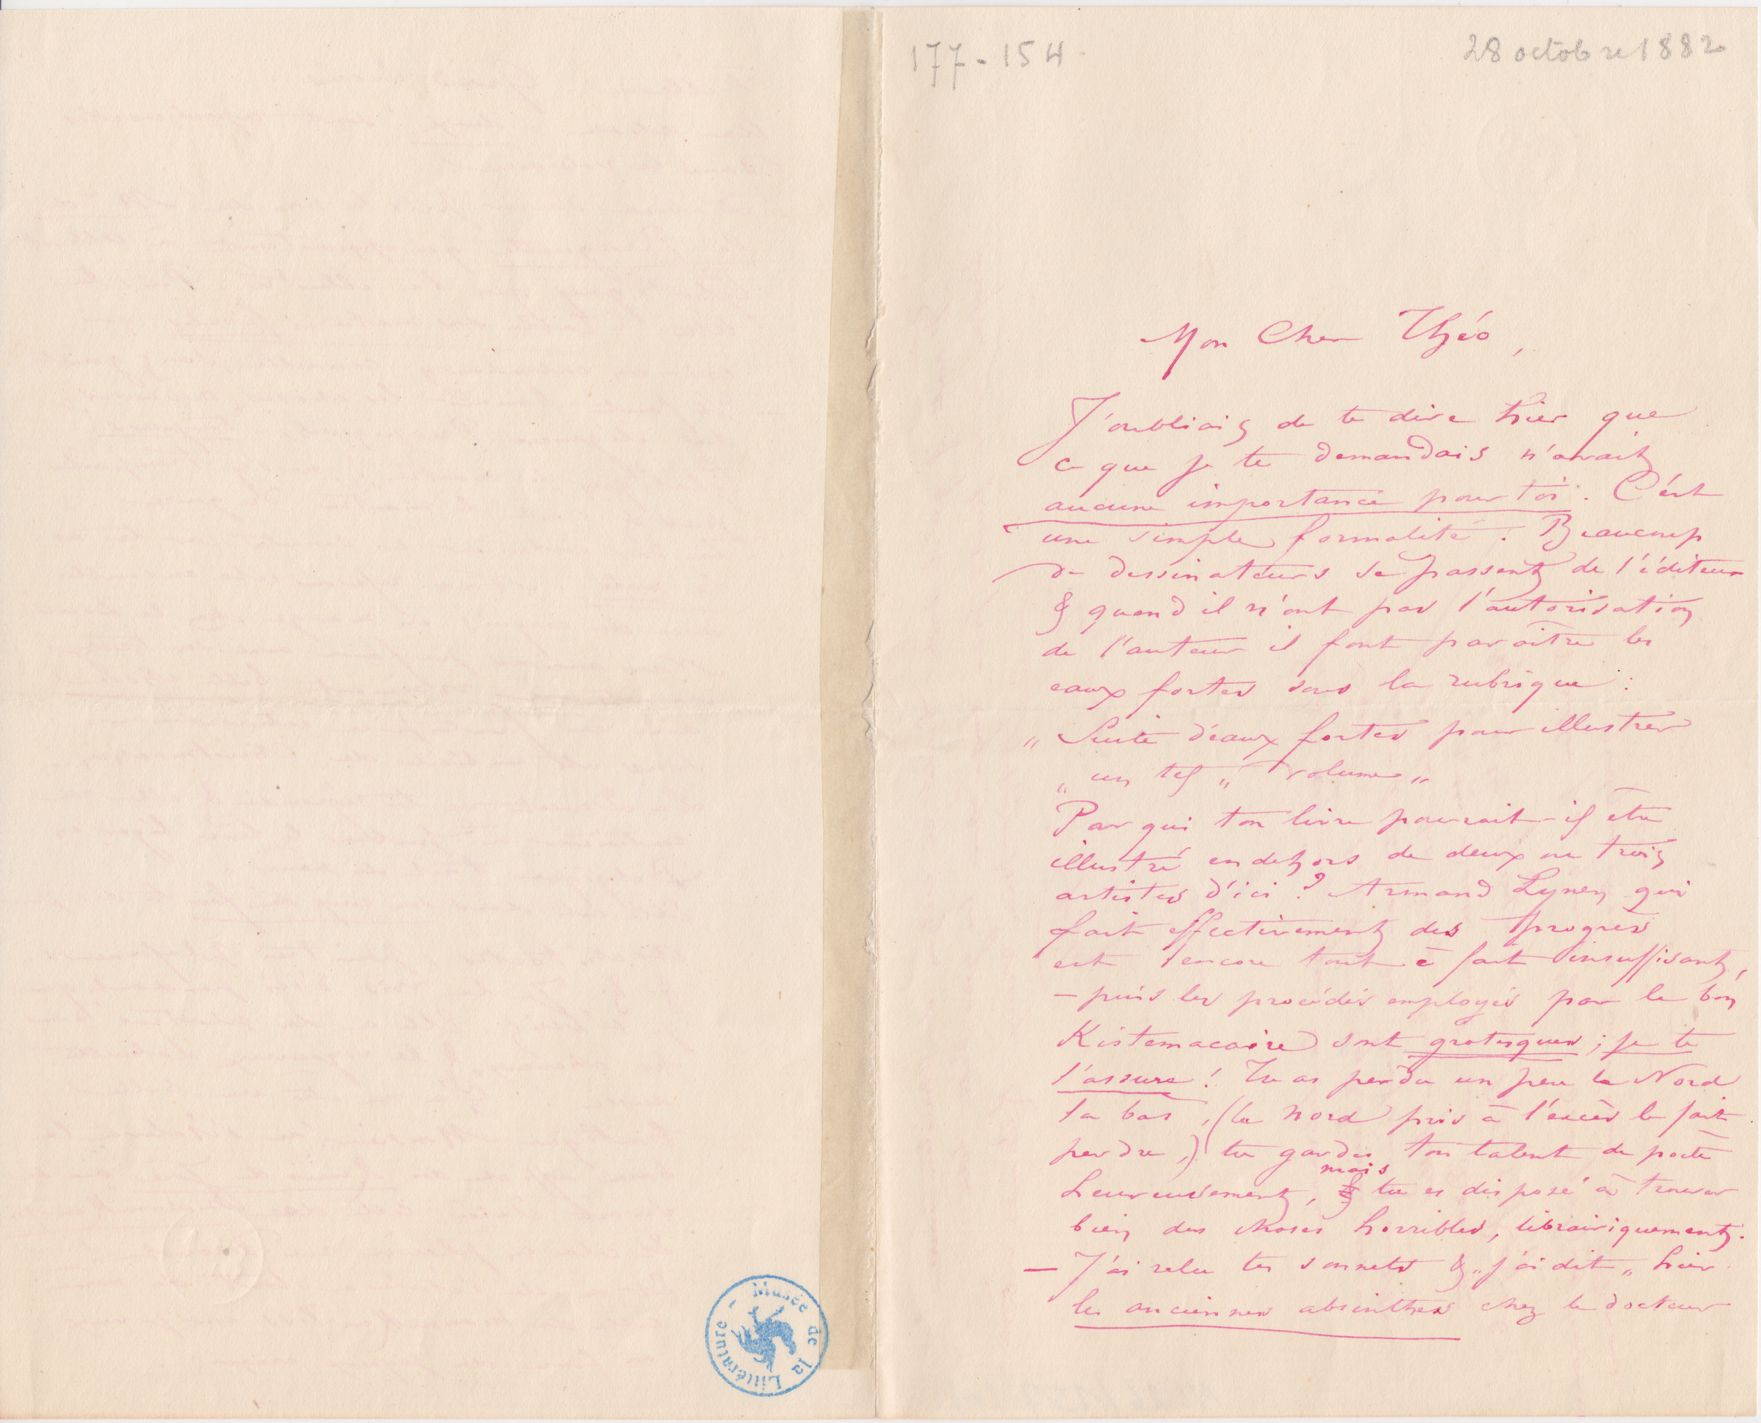 177-154
28 octobre 1882
Mon Cher Théo,
J'oubliais de te dire hier que
ce que je te demandais n'avait
aucune importance pour toi. C'est
une simple formalité. Beaucoup
de dessinateurs se passent de l'éditeur
& quand il n'ont pas l'autorisation
de l'auteur il font paraître les
eaux fortes sous la rubrique :
„ Suite d'eaux fortes pour illustrer
„ un tel „ volume „
Par qui ton livre pourrait-il être
illustré en dehors de deux ou trois
artistes d'ici ? Armand Lynen qui
fait effectivement des progrès
est encore tout à fait insuffisant,
– puis les procédés employés par le bon
Kistemacaire sont grotesques ; je te
l'assure ! Tu as perdu un peu le Nord
la bas, (le nord pris à l'excès le fait
perdre,) tu gardes ton talent de poète
heureusement, mais tu es disposé à trouver
bien des choses horribles, librairiquement.
— J'ai relu tes sonnets & „ j'ai dit „ hier
les anciennes absinthes chez le docteur
Musée de la Littérature -